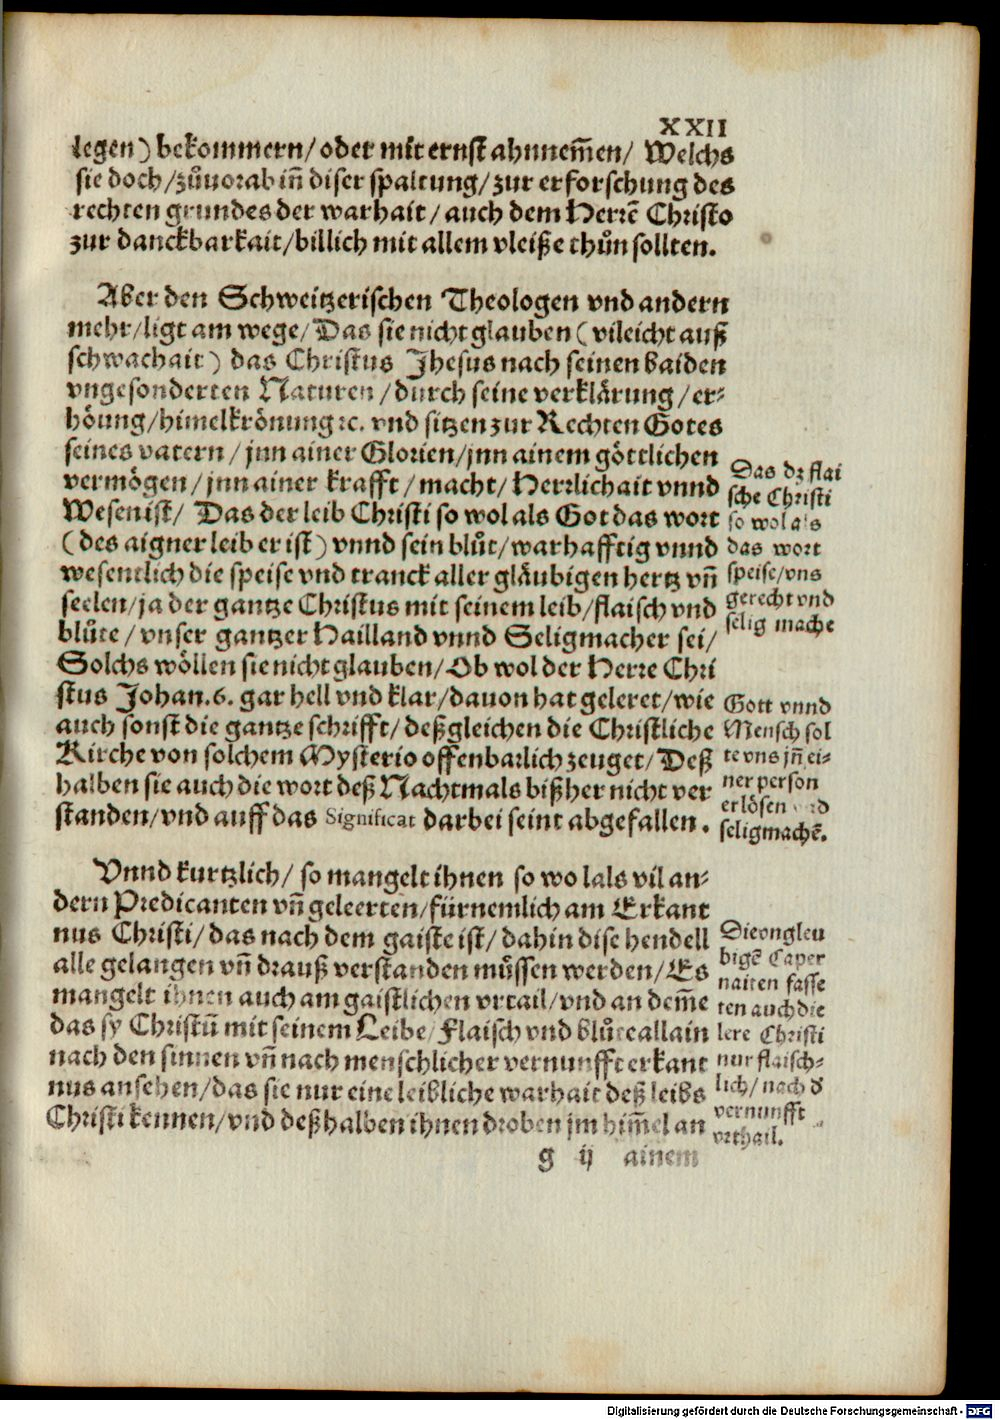 XXII
legen) bekommern/ oder mit ernst ahnnem̃en/ Welchs
sie doch/ zůuorab iñ diser spaltung/ zur erforschung des
rechten grundes der warhait/ auch dem Herrẽ Christo
zur danckbarkait/ billich mit allem vleiße thůn sollten.
Aber den Schweitzerischen Theologen vnd andern
mehr/ ligt am wege/ Das sie nicht glauben (vileicht auß
schwachait) das Christus Jhesus nach seinen baiden
vngesonderten Naturen/ durch seine verklärung/ er⸗
höung/ himelkrönung ꝛc. vnd sitzen zur Rechten Gotes
seines vatern/ jnn ainer Glorien/ jnn ainem göttlichen
vermögen/ jnn ainer krafft/ macht/ Herrlichait vnnd
Wesen ist/ Das der leib Christi so wol als Got das wort
(des aigner leib er ist) vnnd sein blůt/ warhafftig vnnd
wesentlich die speise vnd tranck aller gläubigen hertz vñ
seelen/ ja der gantze Christus mit seinem leib/ flaisch vnd
blůte/ vnser gantzer Hailland vnnd Seligmacher sei/
Solchs wöllen sie nicht glauben/ Ob wol der Herre Chri
stus Johan. 6. gar hell vnd klar/ dauon hat geleret/ wie
auch sonst die gantze schrifft/ deßgleichen die Christliche
Kirche von solchem Mysterio offenbarlich zeuget/ Deß
halben sie auch die wort deß Nachtmals bißher nicht ver
standen/ vnd auff das Significat darbei seint abgefallen.
Das dz flai
sche Christi
so wol als
das wort
speise/ vns
gerecht vnd
selig mache
Gott vnnd
Mensch sol
te vns jñ ei⸗
ner person
erlösen vnd
seligmachẽ.
Vnnd kurtzlich/ so mangelt ihnen so wo lals vil an⸗
dern Predicanten vñ geleerten/ fürnemlich am Erkant
nus Christi/ das nach dem gaiste ist/ dahin dise hendell
alle gelangen vñ drauß verstanden müssen werden/ Es
mangelt ihnen auch am gaistlichen vrtail/ vnd an dem̃e
das sy Christũ mit seinem Leibe/ Flaisch vnd blůte allain
nach den sinnen vñ nach menschlicher vernunfft erkant
nus ansehen/ das sie nur eine leibliche warhait deß leibs
Christi kennen/ vnd deßhalben ihnen droben jm him̃el an
Die vngleu
bigẽ Caper
naiten fasse
ten auch die
lere Christi
nur flaisch⸗
lich/ nach d̓
vernunfft
vrthail.
g ij ainem
Digitalisierung gefördert durch die Deutsche Forschungsgemeinschaft - DFG